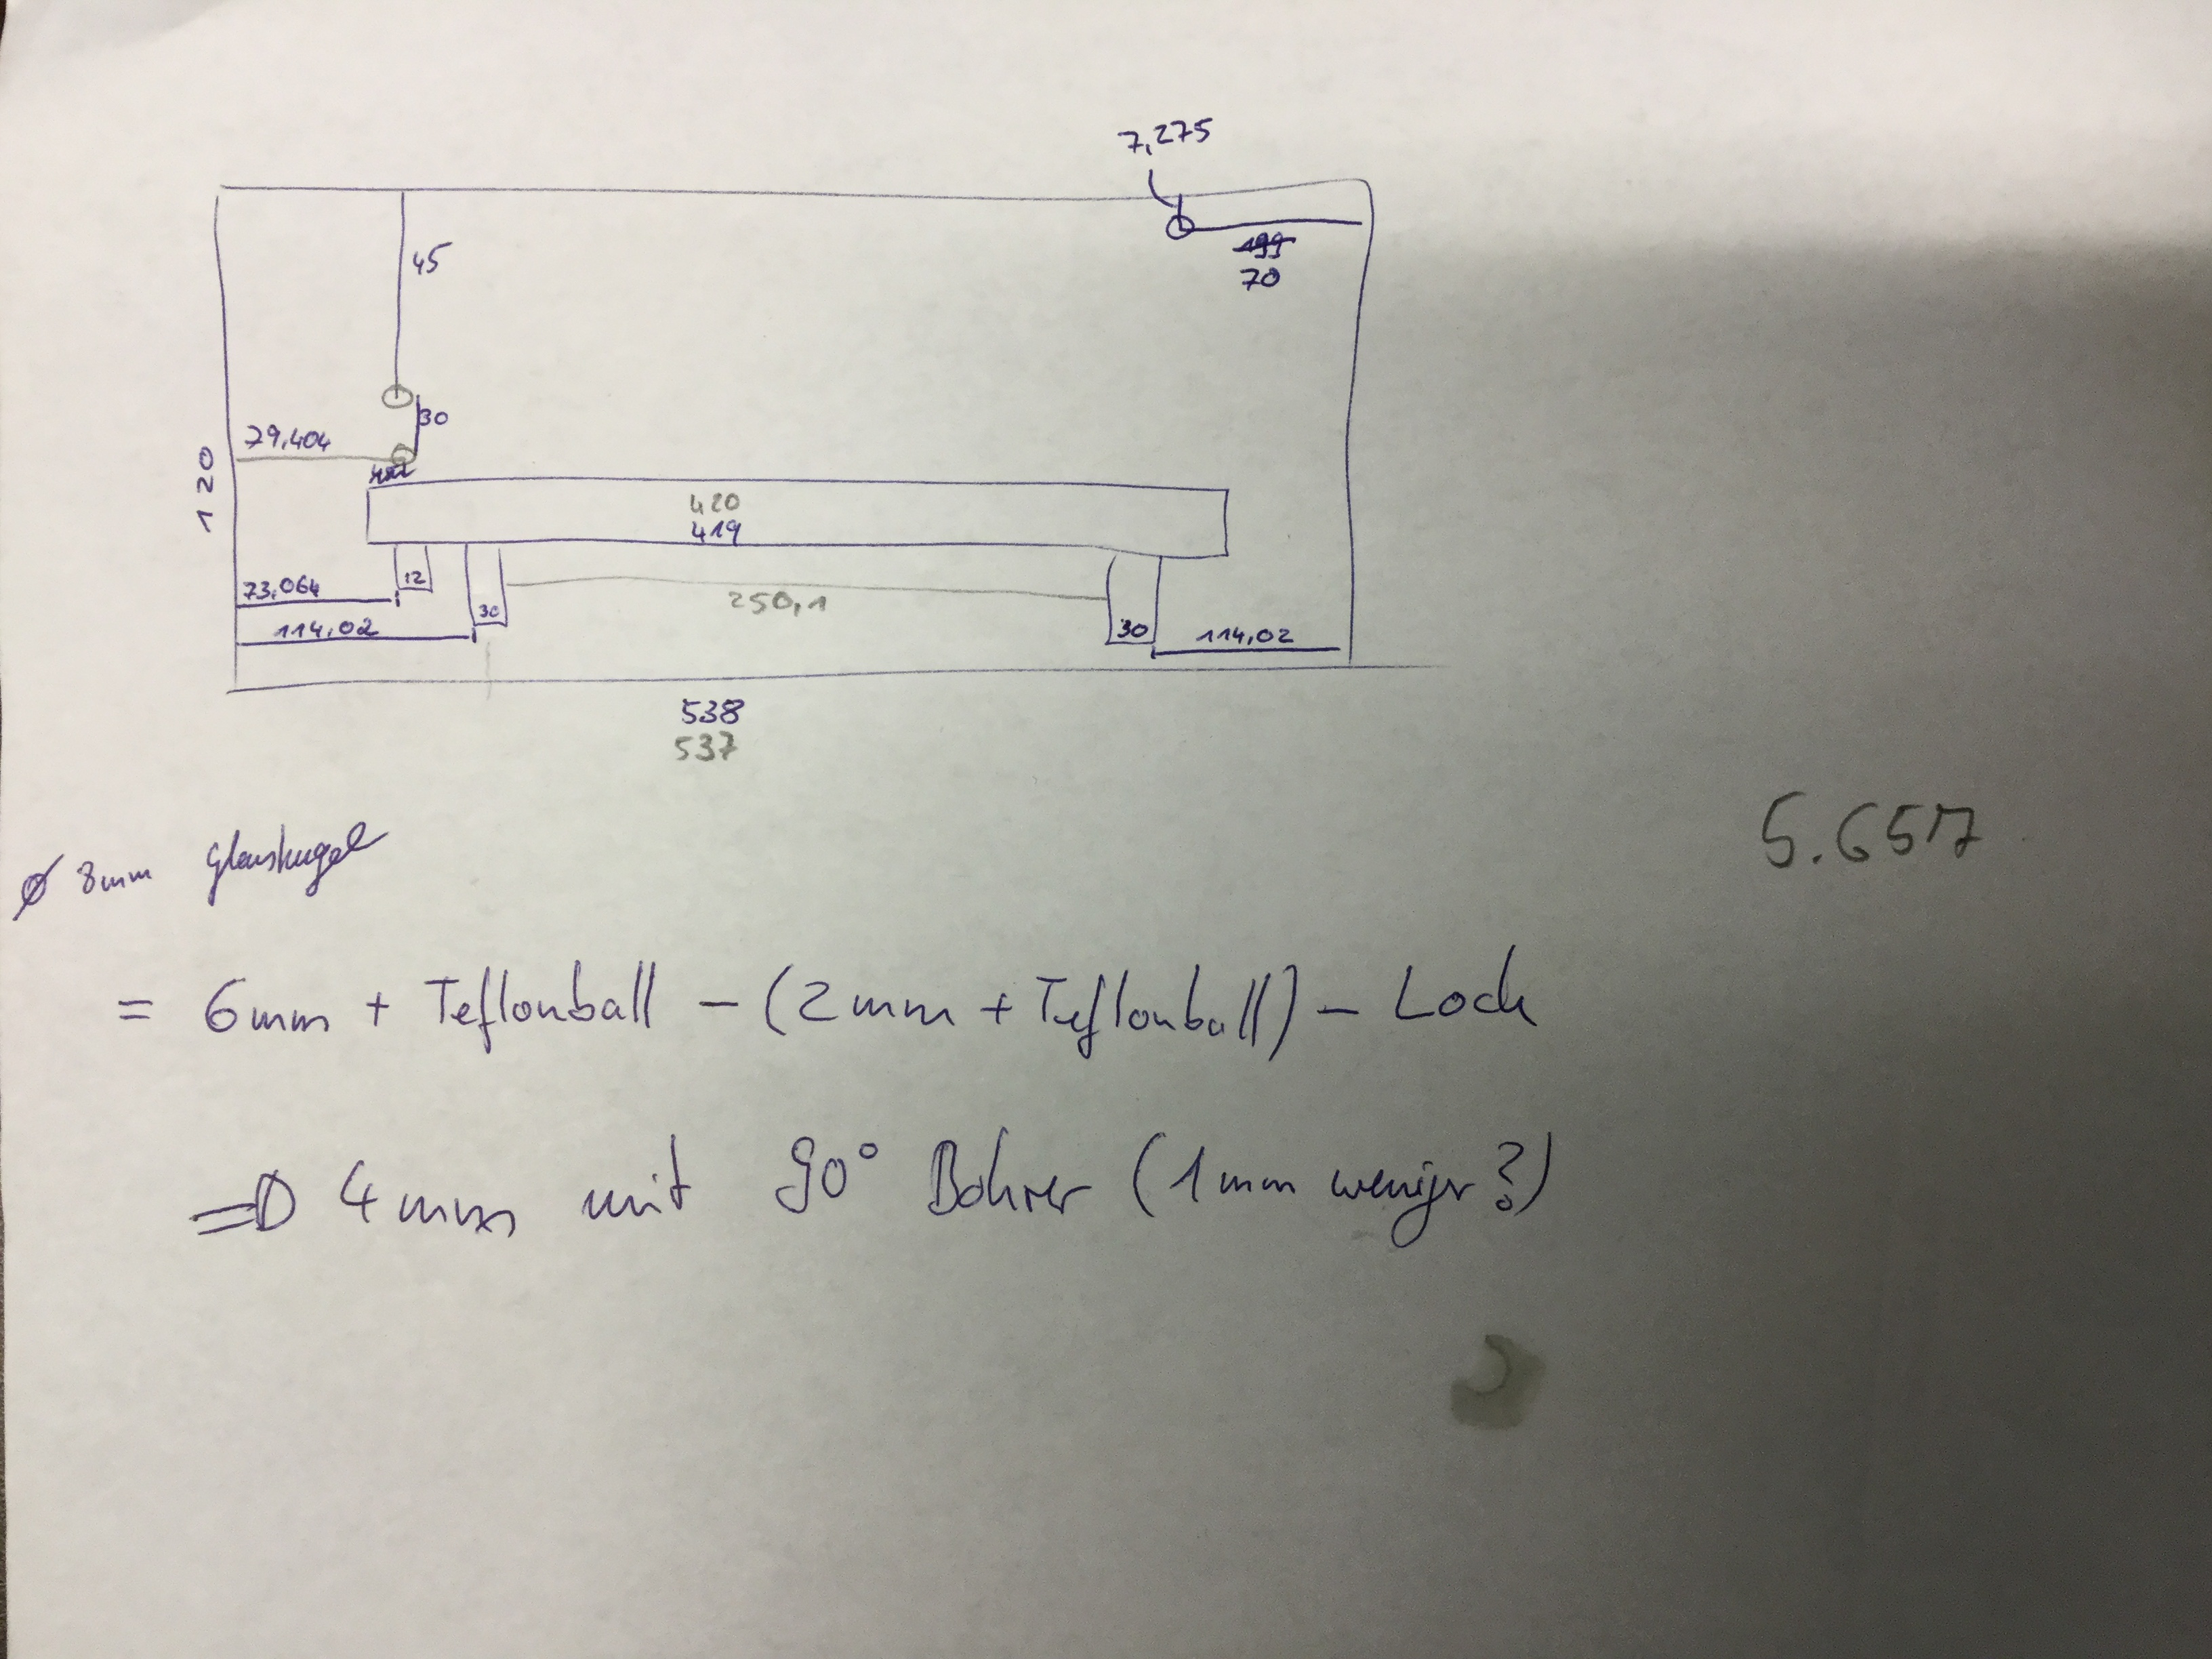 7,275
45
199
70
30
79,404
120
420
419
12
73,064
30
250,1
114,02
30
114,02
538
537
5.657
ø 8mm Glaskugel
= 6mm + Teflonball - (2mm + Teflonball) - Loch
=D 4mm mit 90° Bohrer (1mm weniger?)